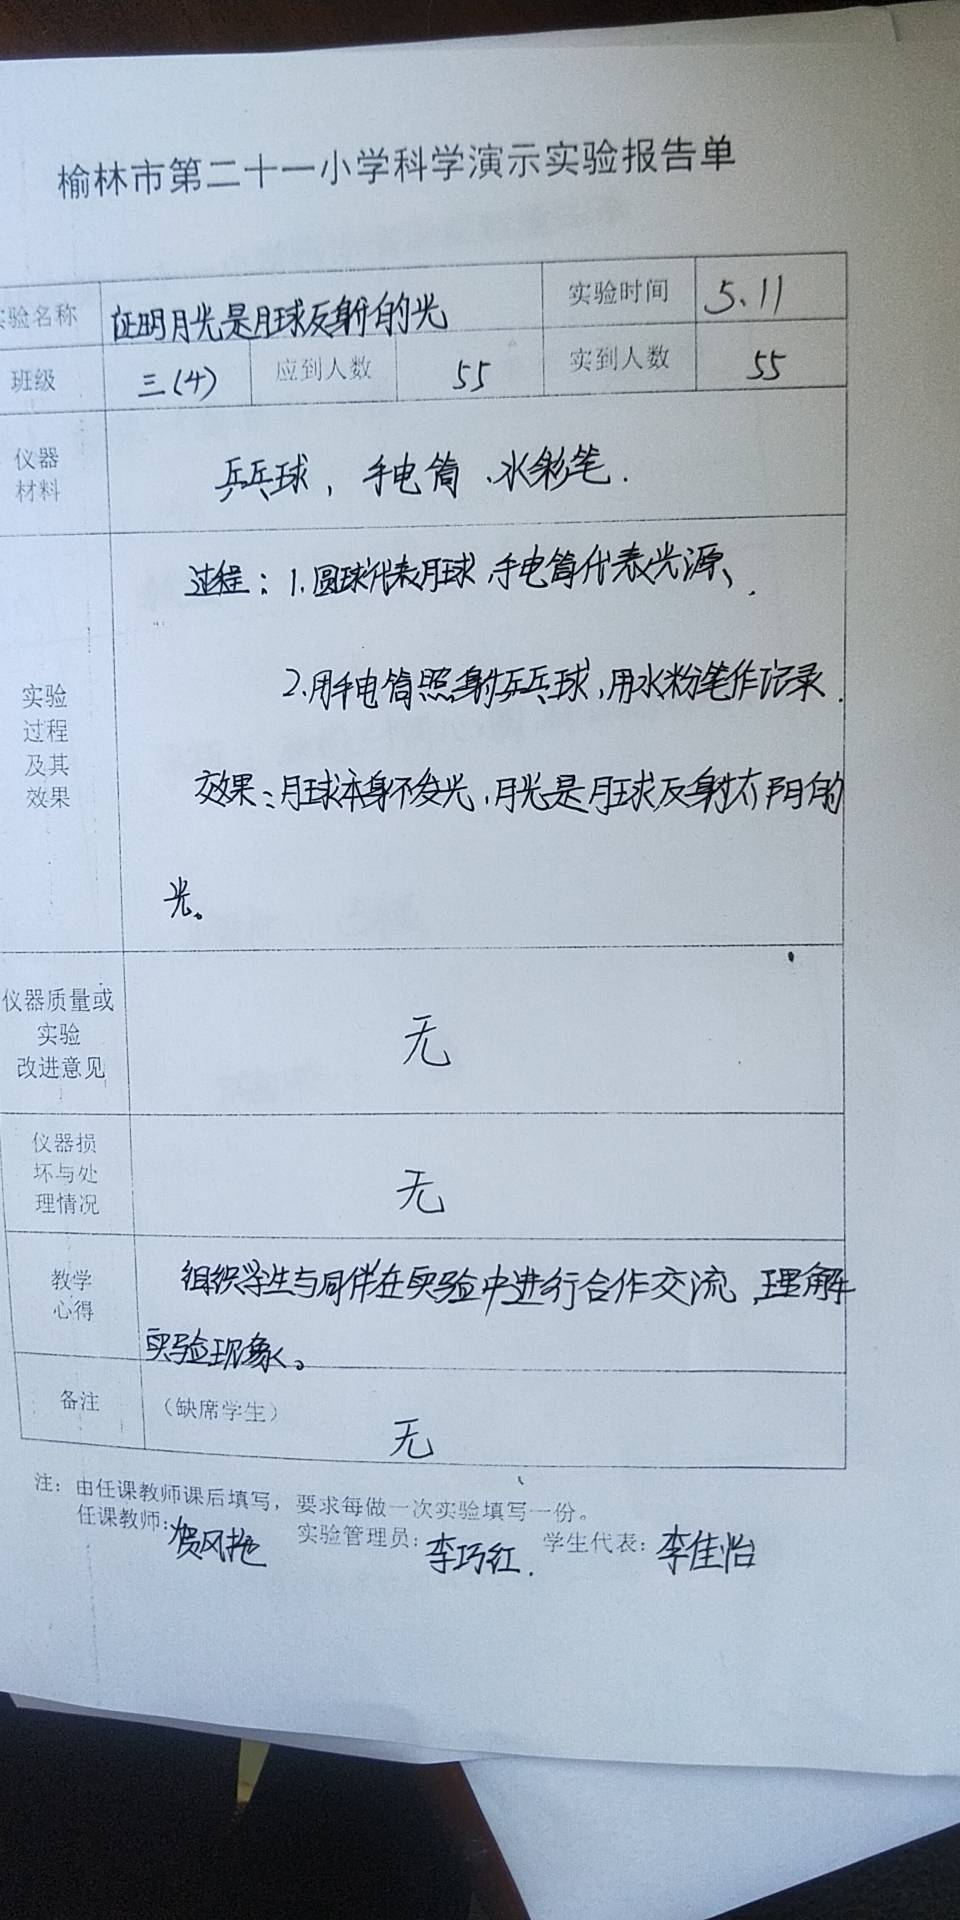 榆林市第二十一小学科学演示实验报告单
实验名称 证明月光是月球反射的光 实验时间 5.11
班级 三(4) 应到人数 55 实到人数 55
仪器
材料
乒乓球，手电筒、水彩笔.
实验
过程
及其
效果
过程：1.圆球代表月球 手电筒代表光源、
2.用手电筒照射乒乓球,用水粉笔作记录.
效果：月球本身不发光,月光是月球反射太阳的
光。
仪器质量或
实验
改进意见
无
仪器损
坏与处
理情况
无
教学
心得
组织学生与同伴在实验中进行合作交流,理解
实验现象。
备注 （缺席学生）
无
注：由任课教师课后填写，要求每做一次实验填写一份。
任课教师:贺风艳 实验管理员:李巧红. 学生代表:李佳怡